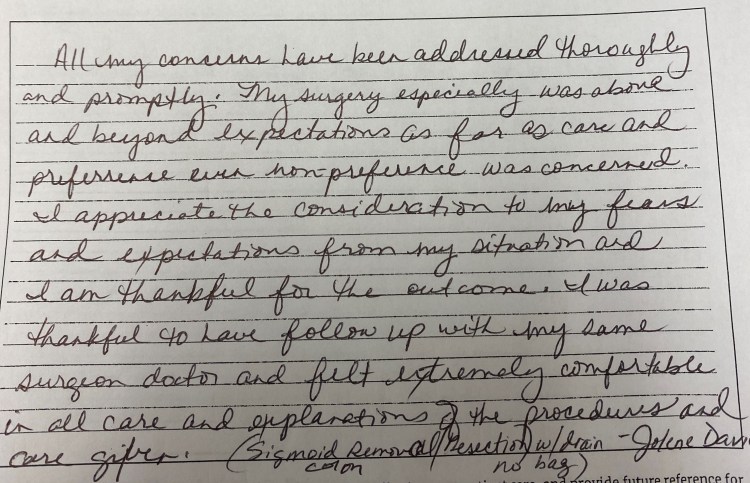 All my concerns have been addressed thoroughly
and promptly. My surgery especially was above
and beyond expectations as far as care and
preferrence even non-preference was concerned.
I appreciate the consideration to my fears
and expectations from my situation and
I am thankful for the outcome. I was
thankful to have follow up with my same
surgeon doctor and felt extremely comfortable
in all care and explanations of the procedures and
care given. (Sigmoid Removal/Resection w/drain - Jolene
colon no bag)
and provide future reference for